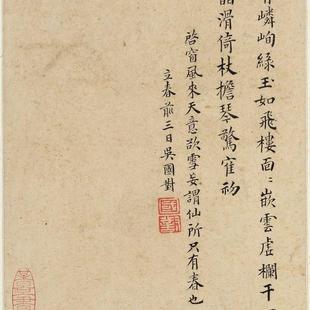 嶙峋綠玉如飛樓面〻嵌雲虛欄干
滑倚杖擔琴驚隺礿
啓窗風來天意欲雪妄謂仙所只有春也
立春前三日吳國對
國對